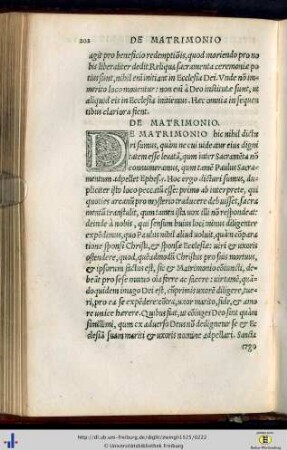 202 DE MATRIMONIO
agit pro beneficio redemptiōis, quod moriendo pro no
bis liberaliter dedit. Reliqua sacramenta ceremoniæ po
tius sunt, nihil enī initiant in Ecclesia Dei. Vnde nō im
merito loco mouentur: non enī à Deo instituta sunt, ut
aliquod eis in Ecclesia initiemus. Hæc omnia in sequen
tibus clariora fient.
DE MATRIMONIO.
DE MATRIMONIO hic nihil dictu
ri sumus, quàm ne cui uideatur eius digni
tatem esse leuatā, quum inter Sacramēta nō
connumeramus, quum tamē Paulus Sacra-
mentum adpellet Ephes. Hoc ergo dicturi sumus, du-
pliciter isto loco peccatū esse: primo ab interprete, qui
quoties arcanū pro mysterio traducere debuisset, sacra
mentū transtulit, quum tamen ista uox illi nō respondeat:
deinde à nobis, qui sensum huius loci minus diligenter
expēdimus, quo Paulus nihil aliud uoluit, quàm cōparatio
ne sponsi Christi, & sponsæ Ecclesiæ: uiri & uxoris
ostendere, quod, quēadmodū Christus pro suis mortuus,
& ipsorum factus est, sic & Matrimonio cōiuncti, de-
beāt pro sese mutuo oīa ferre ac facere: uir tamē, quā-
do quidem imago Dei est, cūprimis uxorē diligere, tue-
ri, pro ea se expōdere cōtra, uxor marito, fide, & amo
re unice hærere. Quibus fiat, ut cōiuges Deo sint quàm
simillimi, quum ex aduerso Deus nō dedignetur se & Ec
clesiā suam mariti & uxoris nomine adpellari. Sancta
ergo
http://dl.ub.uni-freiburg.de/diglit/zwingli1525/0222
© Universitätsbibliothek Freiburg